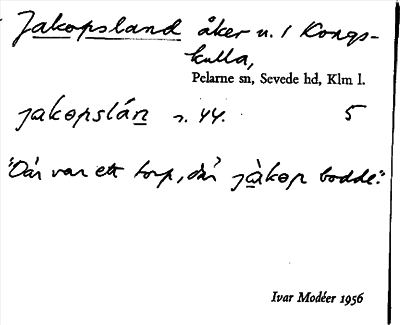 Jakopsland åker u. / Kongs-
kulla,
Pelarne sn, Sevede hd, Klm l.
jakopslán s. 44. 5
"Där var ett torp, där jàkop bodde."
Ivar Modéer 1956